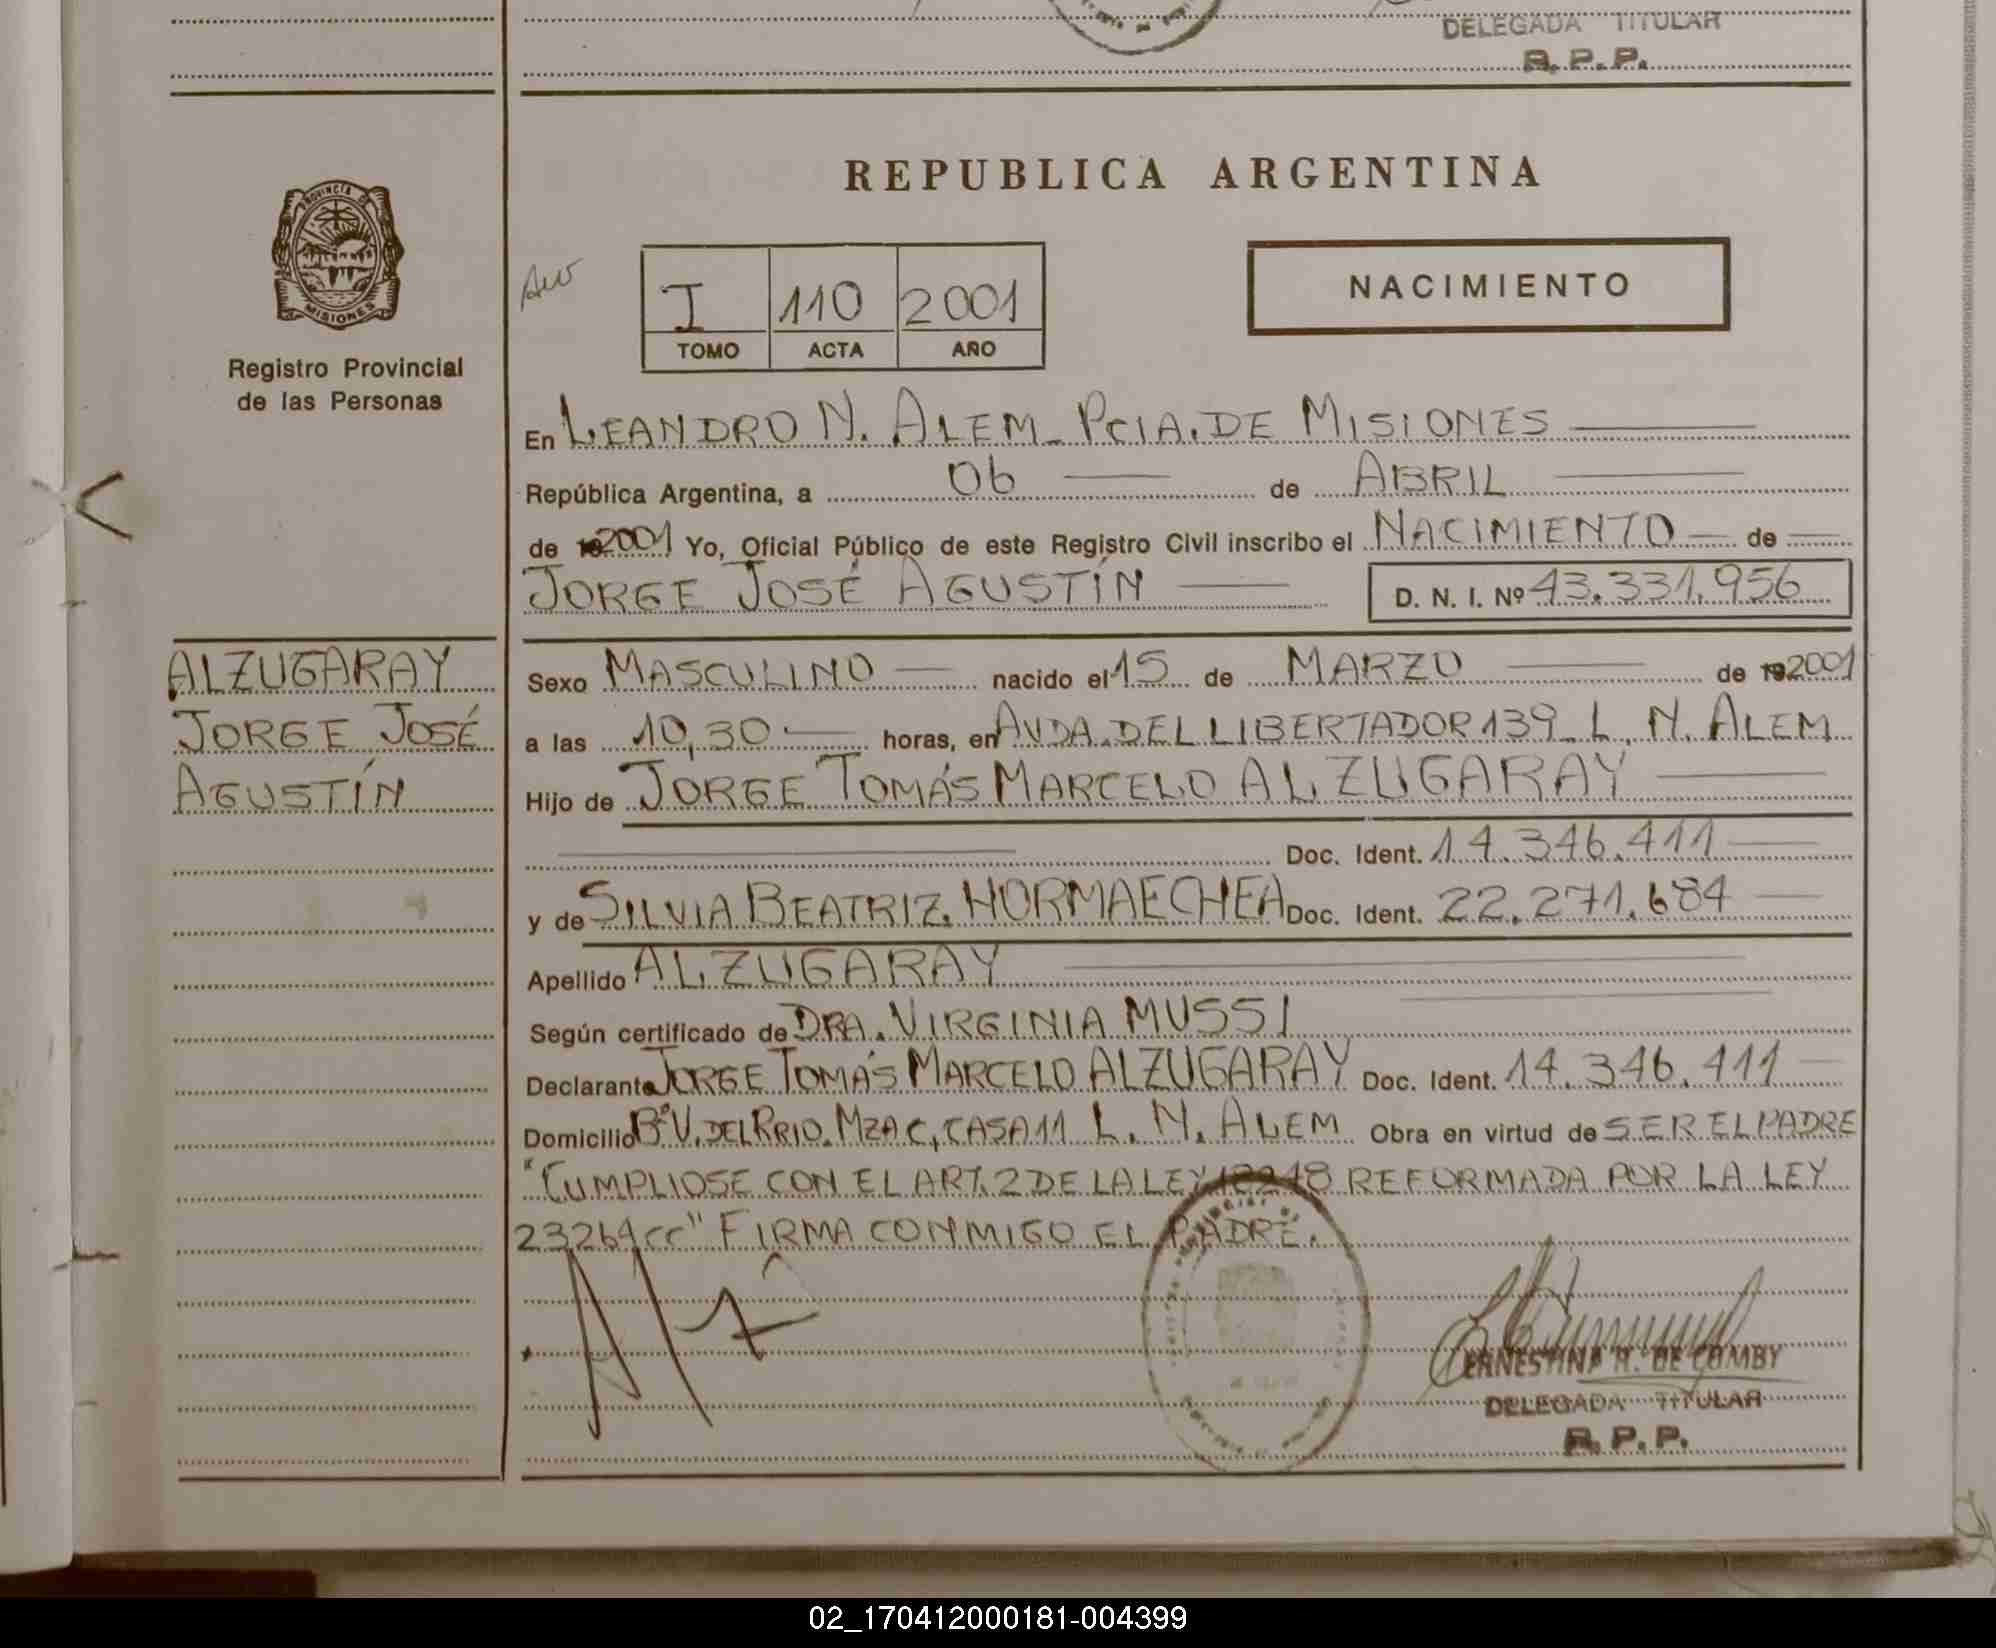 DELEGADA TITULAR
R.P.P.
PROVINCIA DE
MISIONES
Registro Provincial
de las Personas
REPUBLICA ARGENTINA
I 110 2001
TOMO ACTA AÑO
NACIMIENTO
En LEANDRO N. ALEM - PCIA. DE MISIONES
República Argentina, a 06 de ABRIL
de 2001 Yo, Oficial Público de este Registro Civil inscribo el NACIMIENTO de
JORGE JOSÉ AGUSTÍN D. N. I. Nº 43.331.956
ALZUGARAY
JORGE JOSÉ
AGUSTÍN
Sexo MASCULINO nacido el 15 de MARZO de 2001
a las 10,30 horas, en AVDA. DEL LIBERTADOR 139 - L. N. ALEM
Hijo de JORGE TOMÁS MARCELO ALZUGARAY
Doc. Ident. 14.346.411
y de SILVIA BEATRIZ HORMAECHEA Doc. Ident. 22.271.684
Apellido ALZUGARAY
Según certificado de DRA. VIRGINIA MUSSI
Declarante JORGE TOMÁS MARCELO ALZUGARAY Doc. Ident. 14.346.411
Domicilio Bº V. DEL RRIO. MZA C, CASA 11 L. N. ALEM Obra en virtud de SER EL PADRE
"CUMPLIOSE CON EL ART. 2 DE LA LEY 18248 REFORMADA POR LA LEY
23264 CC" FIRMA CONMIGO EL PADRE.
ERNESTINA R. DE COMBY
DELEGADA TITULAR
R.P.P.
02_170412000181-004399